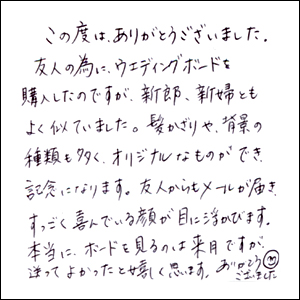 この度は、ありがとうございました。
友人の為に、ウエディングボードを
購入したのですが、新郎、新婦とも
よく似ていました。髪かざりや、背景の
種類も多く、オリジナルなものができ、
記念になります。友人からもメールが届き、
すっごく喜んでいる顔が目に浮かびます。
本当に、ボードを見るのは来月ですが、
送ってよかったと嬉しく思います。ありがとう
ございました